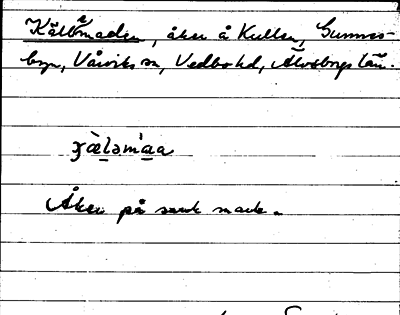 Kälbmaden, åker å Kullen, Gunnes-
byn, Vårviks sn, Vedbo hd, Älvsborgs län.
Åker på sank mark.